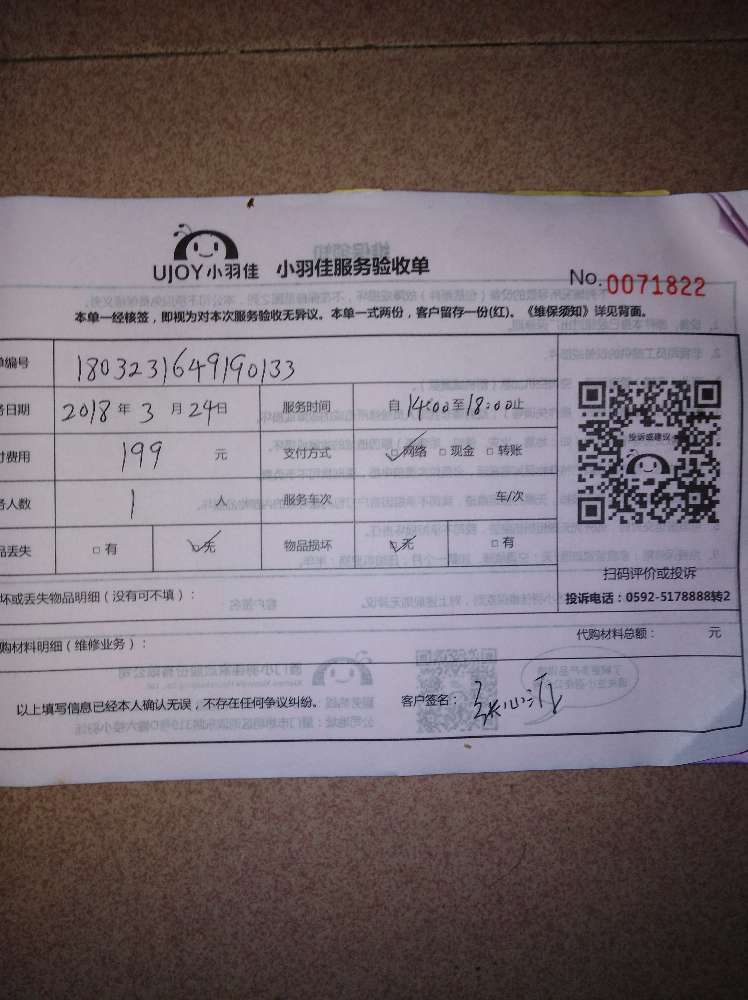 UJOY小羽佳 小羽佳服务验收单
No.0071822
本单一经核签，即视为对本次服务验收无异议。本单一式两份，客户留存一份(红)。《维保须知》详见背面。
单编号 1803231649190133
务日期 2018年3月24日 服务时间 自14:00至18:00止
付费用 199元 支付方式 □网络 □现金 □转账
务人数 1人 服务车次 车/次
品丢失 □有 □无 物品损坏 □无 □有
投诉或建议
扫码评价或投诉
坏或丢失物品明细（没有可不填）：
投诉电话：0592-5178888转2
购材料明细（维修业务）：
代购材料总额： 元
以上填写信息已经本人确认无误，不存在任何争议纠纷。 客户签名：